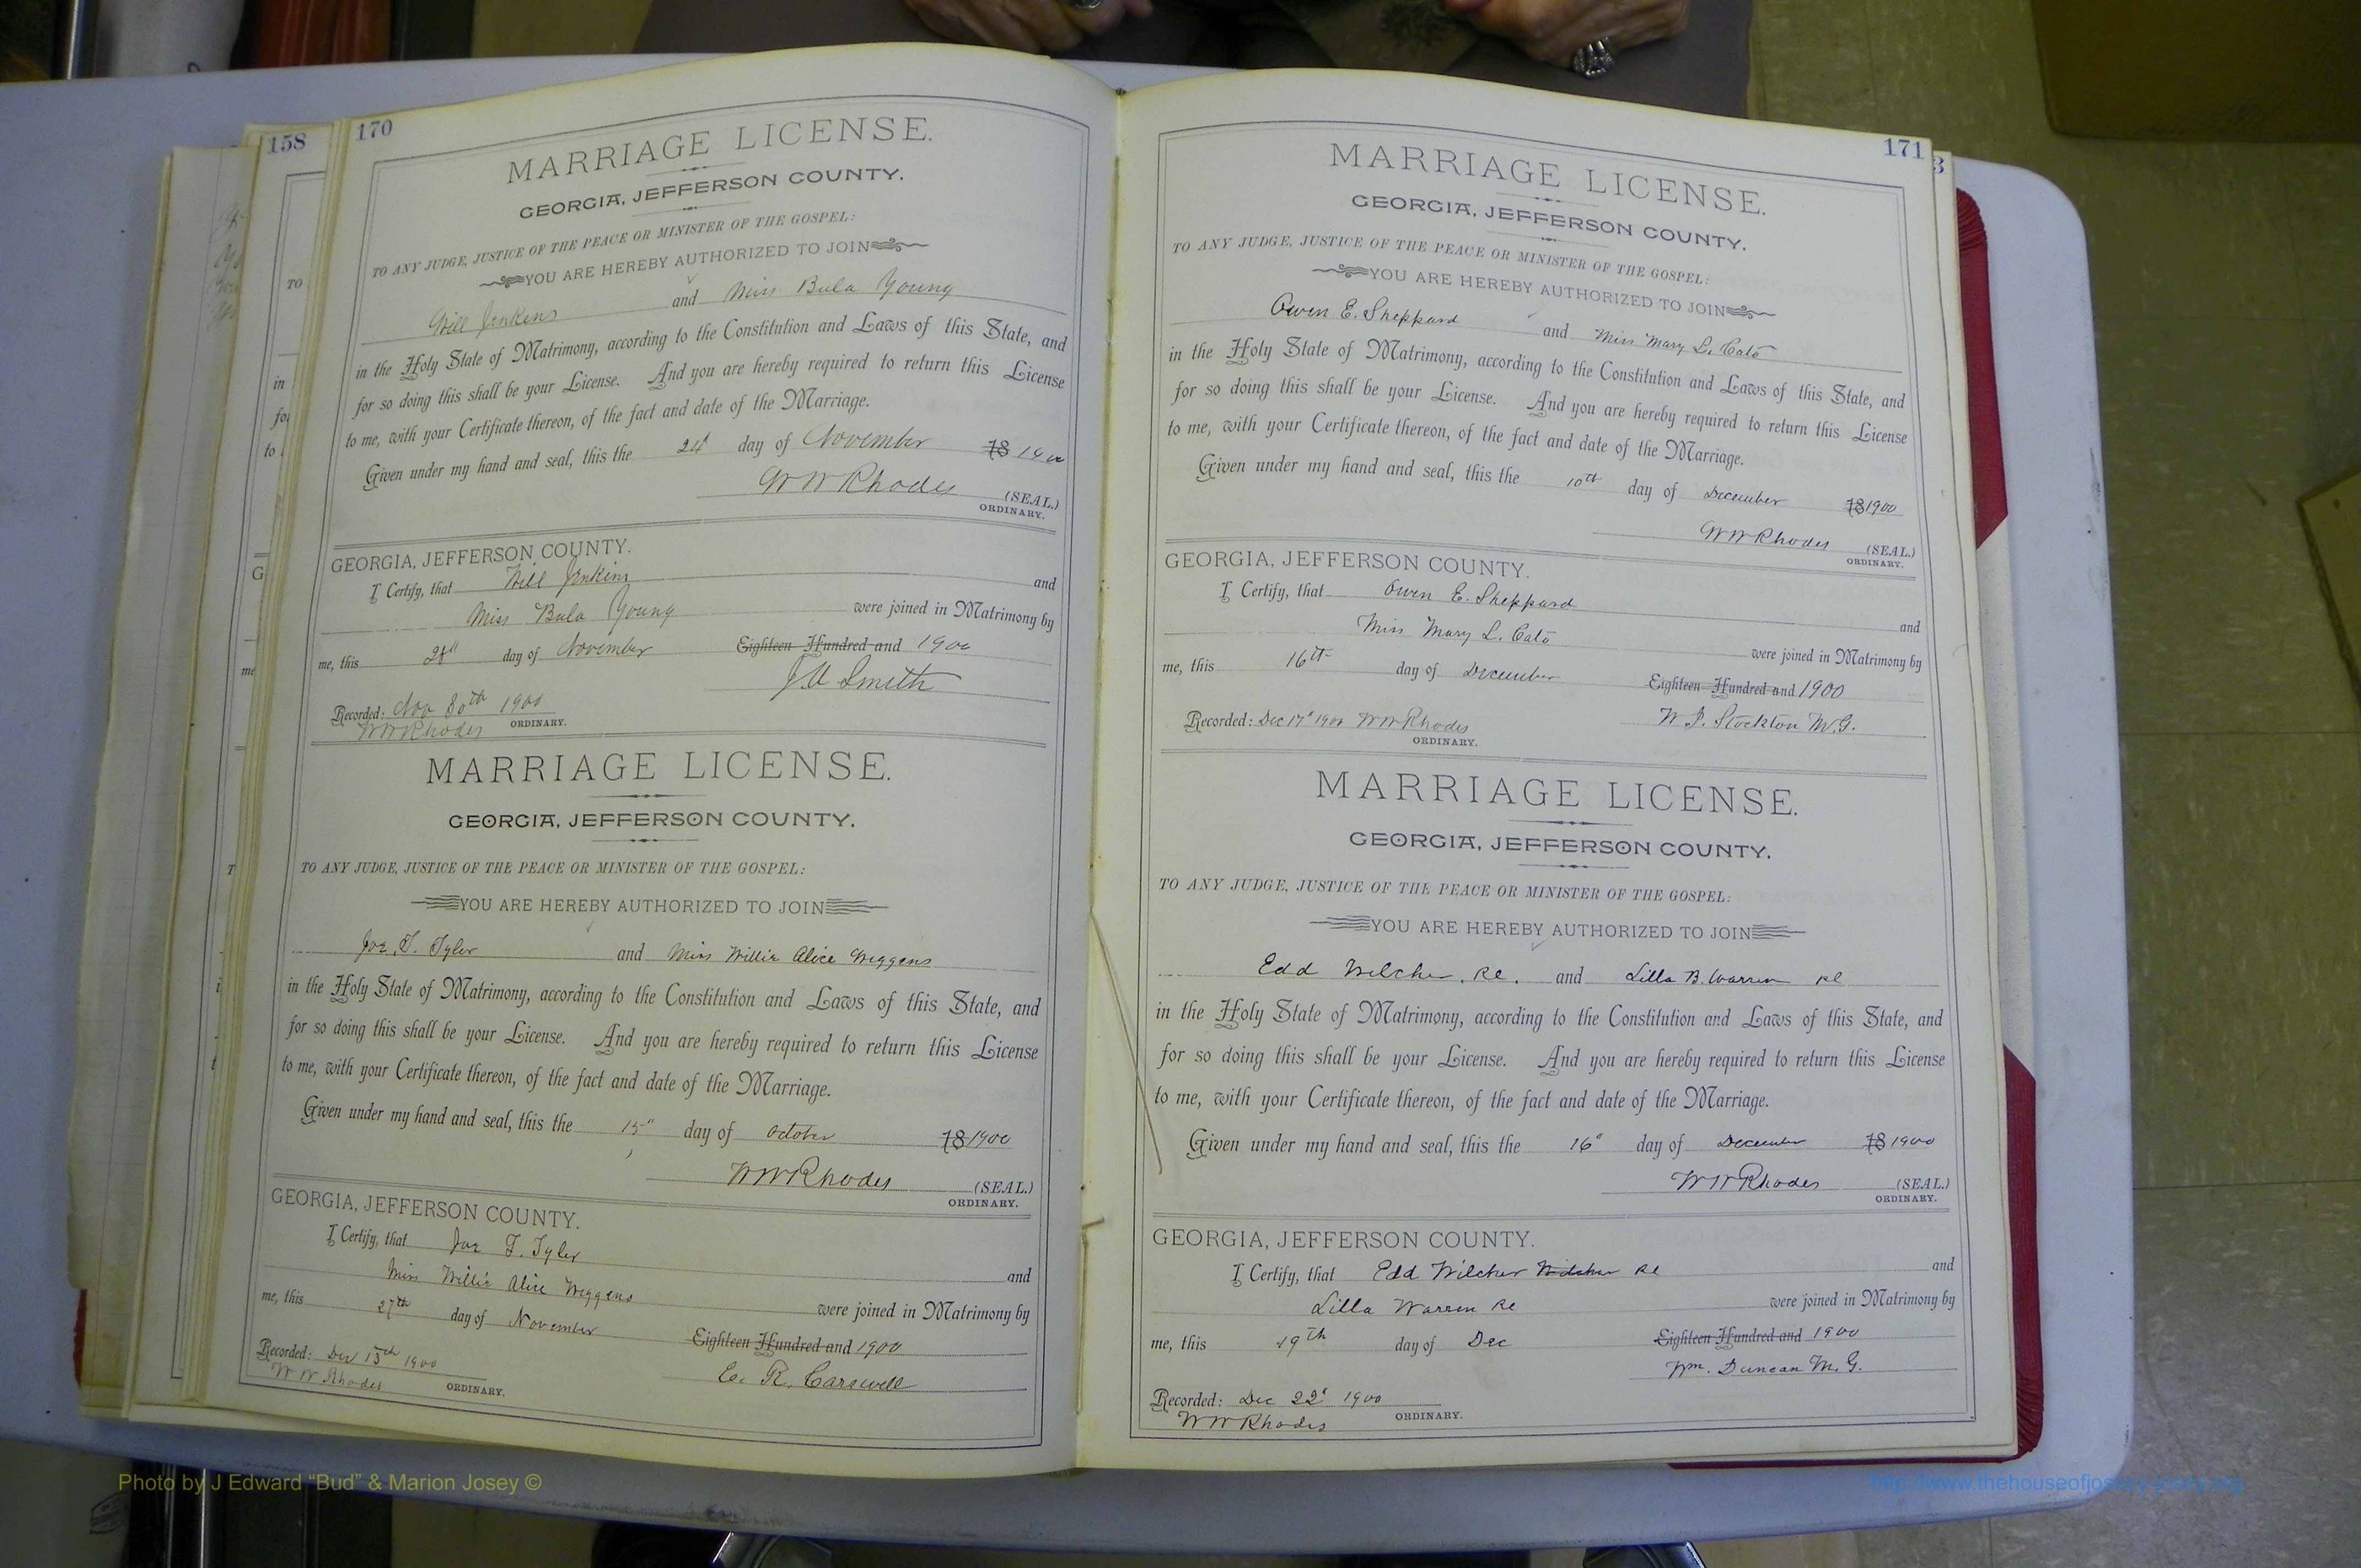 158
170
MARRIAGE LICENSE.
GEORGIA, JEFFERSON COUNTY.
TO ANY JUDGE, JUSTICE OF THE PEACE OR MINISTER OF THE GOSPEL:
YOU ARE HEREBY AUTHORIZED TO JOIN
Will Jenkins and Miss Bula Young
in the Holy State of Matrimony, according to the Constitution and Laws of this State, and
for so doing this shall be your License. And you are hereby required to return this License
to me, with your Certificate thereon, of the fact and date of the Marriage.
Given under my hand and seal, this the 24 day of November 18 1900
WW Rhodes (SEAL.)
ORDINARY.
GEORGIA, JEFFERSON COUNTY.
I Certify, that Will Jenkins and
Miss Bula Young were joined in Matrimony by
me, this day of November Eighteen Hundred and 1900
Smith
Recorded: Nov 30th 1900
WW Rhodes ORDINARY.
MARRIAGE LICENSE.
GEORGIA, JEFFERSON COUNTY.
TO ANY JUDGE, JUSTICE OF THE PEACE OR MINISTER OF THE GOSPEL:
YOU ARE HEREBY AUTHORIZED TO JOIN
Joe T. Tyler and Miss Willie Alice Wiggens
in the Holy State of Matrimony, according to the Constitution and Laws of this State, and
for so doing this shall be your License. And you are hereby required to return this License
to me, with your Certificate thereon, of the fact and date of the Marriage.
Given under my hand and seal, this the 15" day of October 18 1900
WW Rhodes (SEAL.)
ORDINARY.
GEORGIA, JEFFERSON COUNTY.
I Certify, that Joe T. Tyler
and
Miss Willie Alice Wiggens were joined in Matrimony by
me, this 27th day of November Eighteen Hundred and 1900
E. R. Carswell
Recorded: Dec 15th 1900
WW Rhodes ORDINARY.
171
3
MARRIAGE LICENSE.
GEORGIA, JEFFERSON COUNTY.
TO ANY JUDGE, JUSTICE OF THE PEACE OR MINISTER OF THE GOSPEL:
YOU ARE HEREBY AUTHORIZED TO JOIN
Owen E. Sheppard and Miss Mary L. Cato
in the Holy State of Matrimony, according to the Constitution and Laws of this State, and
for so doing this shall be your License. And you are hereby required to return this License
to me, with your Certificate thereon, of the fact and date of the Marriage.
Given under my hand and seal, this the 10th day of December 18 1900
WW Rhodes (SEAL.)
ORDINARY.
GEORGIA, JEFFERSON COUNTY.
I Certify, that Owen E. Sheppard
and
Miss Mary L. Cato were joined in Matrimony by
me, this 16th day of December Eighteen Hundred and 1900
Stockton M.G.
Recorded: Dec 17" 1900 WW Rhodes
ORDINARY.
MARRIAGE LICENSE.
GEORGIA, JEFFERSON COUNTY.
TO ANY JUDGE, JUSTICE OF THE PEACE OR MINISTER OF THE GOSPEL:
YOU ARE HEREBY AUTHORIZED TO JOIN
Edd Wilcher and Lilla B. Warren
in the Holy State of Matrimony, according to the Constitution and Laws of this State, and
for so doing this shall be your License. And you are hereby required to return this License
to me, with your Certificate thereon, of the fact and date of the Marriage.
Given under my hand and seal, this the 16" day of December 18 1900
WW Rhodes (SEAL.)
ORDINARY.
GEORGIA, JEFFERSON COUNTY.
I Certify, that Edd Wilcher Wilcher and
Lilla Warren were joined in Matrimony by
me, this 19th day of Dec Eighteen Hundred and 1900
Wm. Duncan M. G.
Recorded: Dec 22d 1900
WW Rhodes ORDINARY.
Photo by J Edward “Bud” & Marion Josey ©